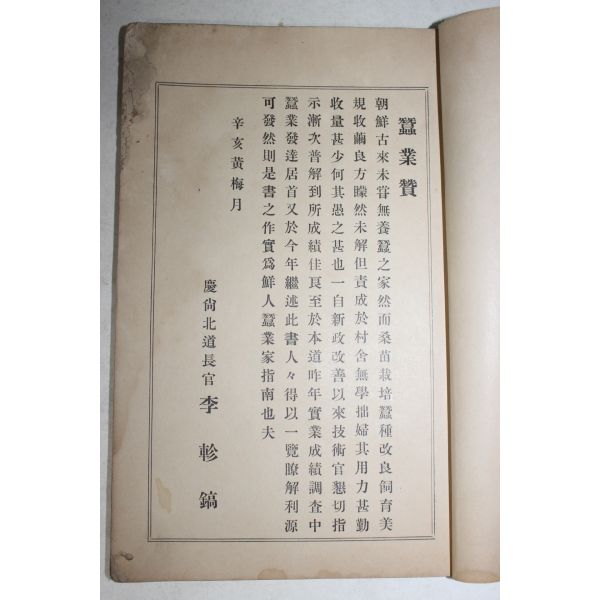 蠶業贊
朝鮮古來未甞無養蠶之家然而桑苗栽培蠶種改良飼育美
規收繭良方矇然未解但責成於村舍無學拙婦其用力甚勤
收量甚少何其愚之甚也一自新政改善以來技術官懇切指
示漸次普解到所成績佳良至於本道昨年實業成績調査中
蠶業發達居首又於今年繼述此書人々得以一覽瞭解利源
可發然則是書之作實爲鮮人蠶業家指南也夫
辛亥黃梅月
慶尙北道長官 李軫鎬